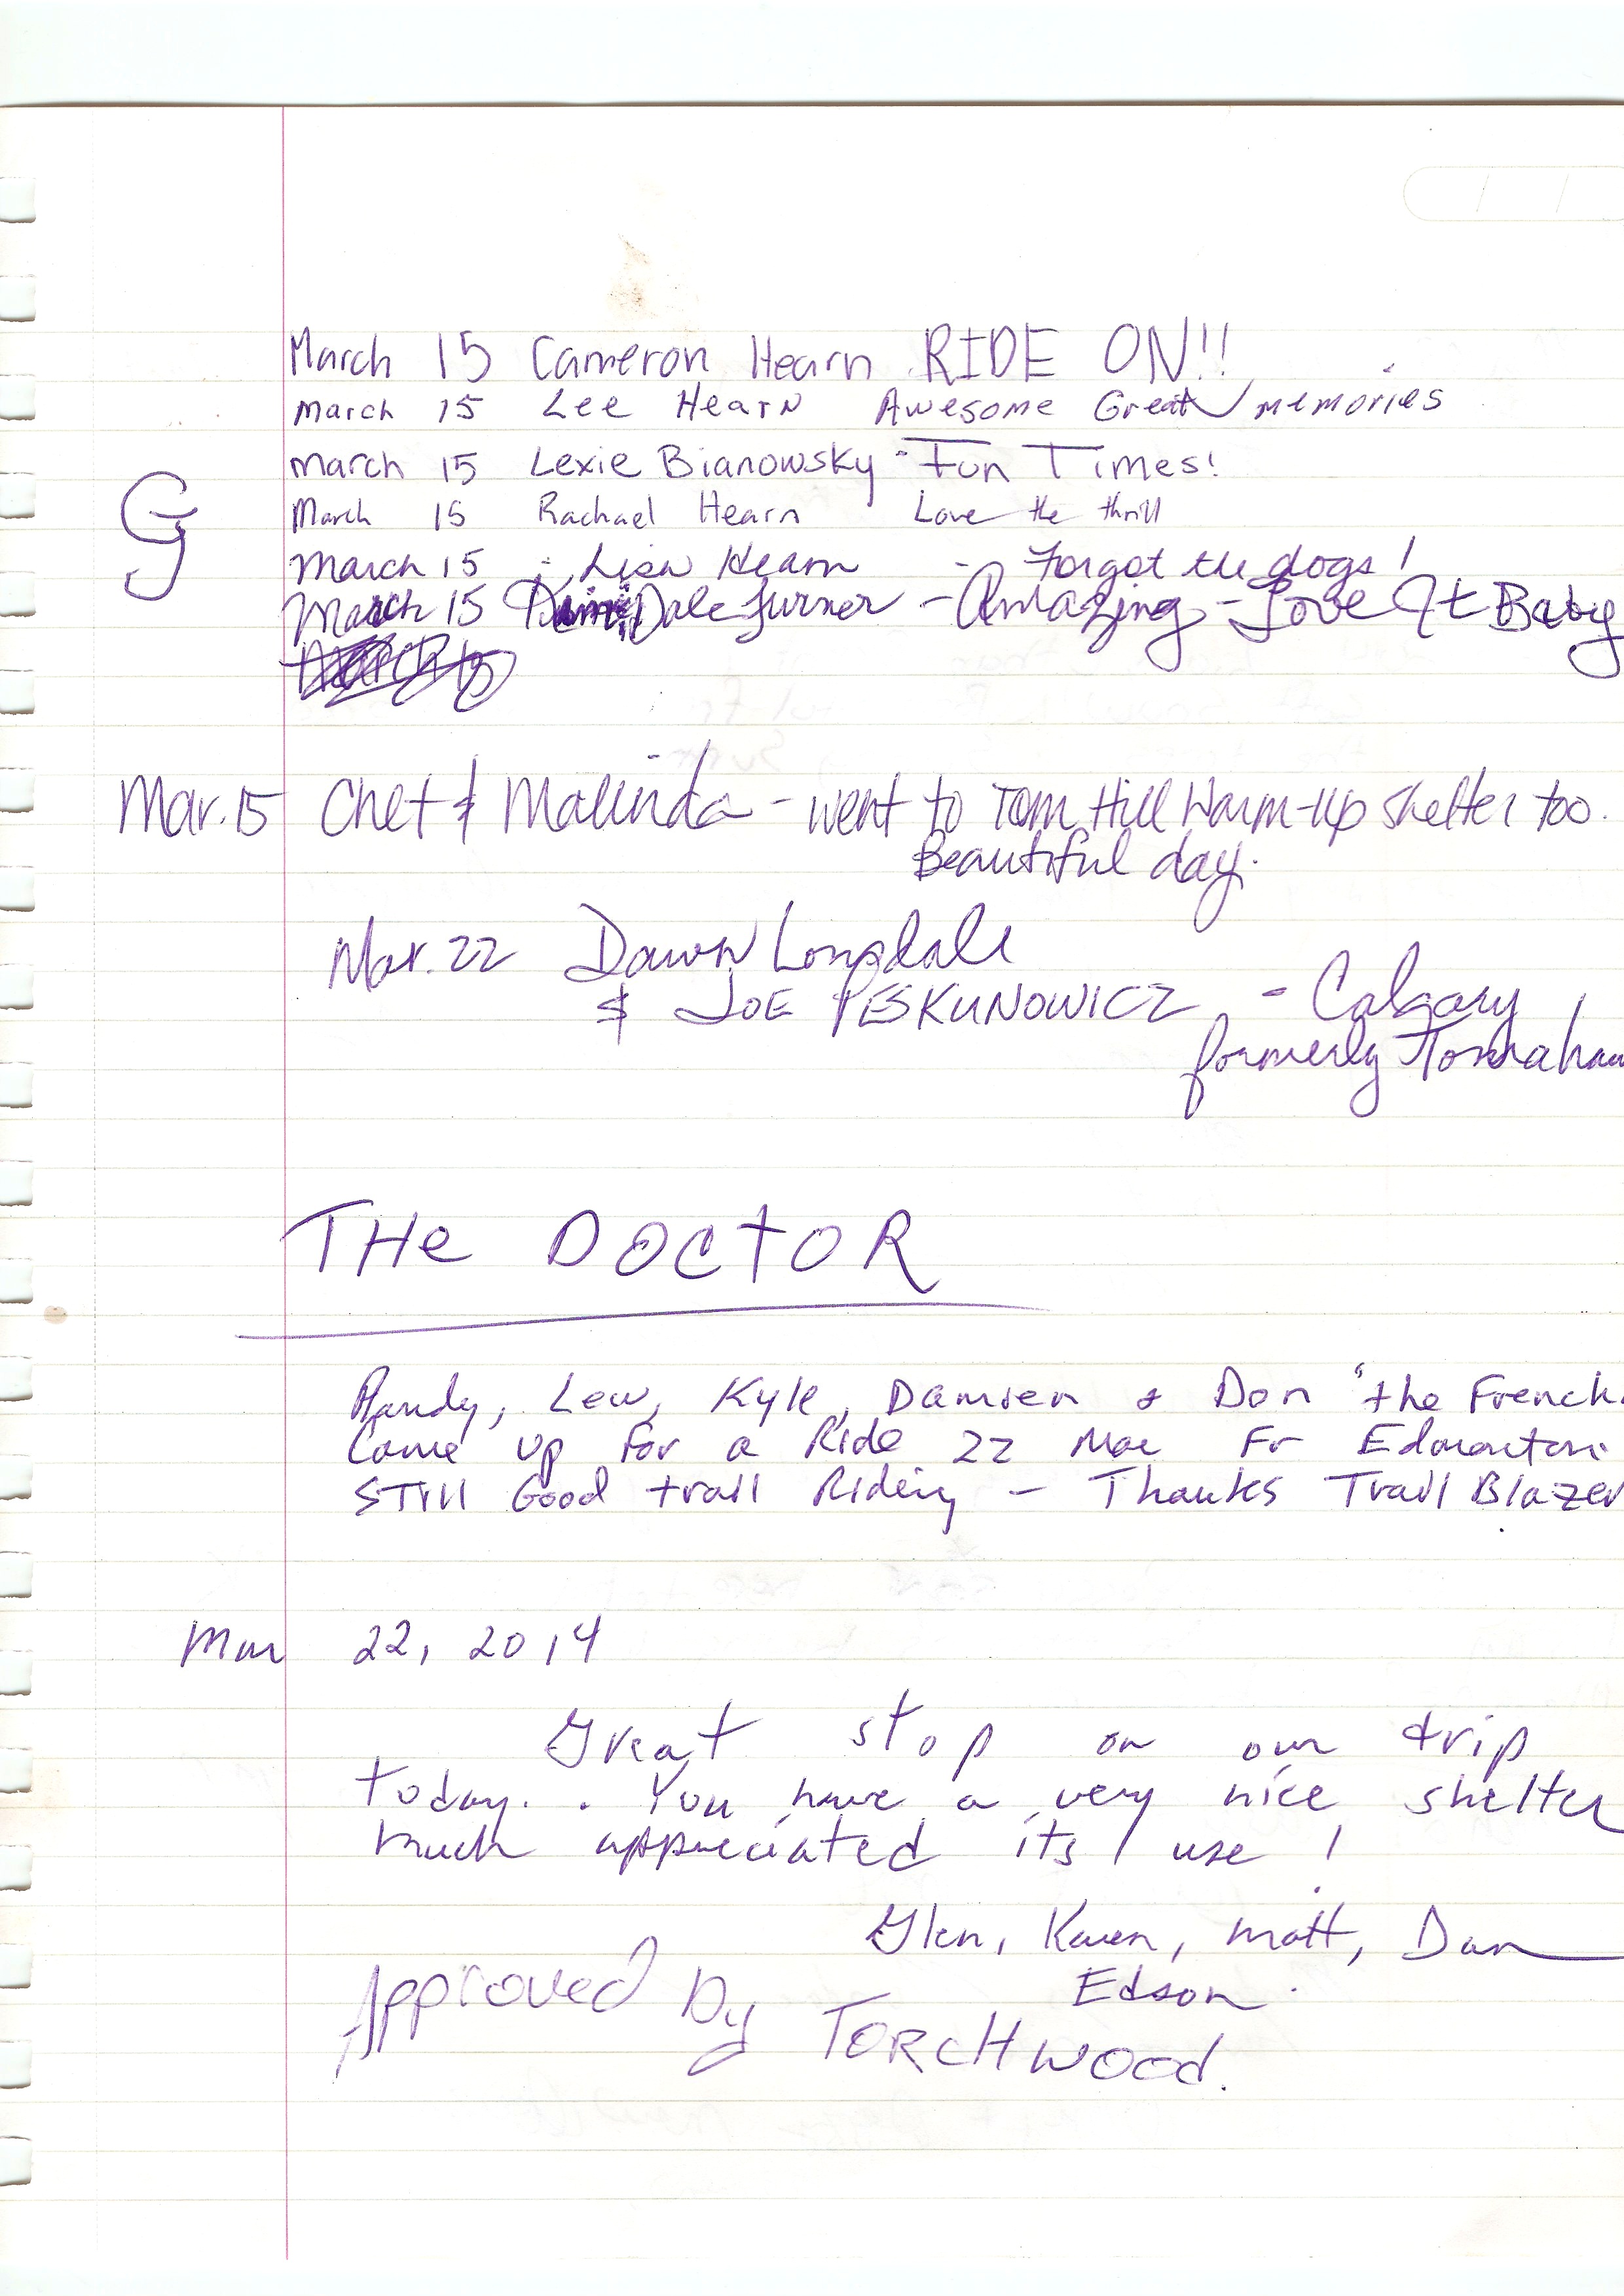 March 15 Cameron Hearn RIDE ON!!
March 15 Lee Hearn Awesome Great memories
March 15 Lexie Bianowsky - Fun Times!
G
March 15 Rachael Hearn Love the thrill
March 15 Lisa Hearn - Forgot the dogs!
March 15 Dale Turner - Amazing - Love It Baby
March 15
Mar. 15 Chet & Malinda - went to Tom Hill Warm-Up Shelter too.
Beautiful day.
Mar. 22 Dawn Lonsdale
& JOE PESKUNOWICZ - Calgary
formerly Tomahaw
THe DOCTOR
Randy, Lew, Kyle, Damien & Don "the French
Came up for a Ride 22 Mar Fr Edmonton
STill Good trail Riding - Thanks Trail Blazer
Mar 22, 2014
Great stop on our trip
today. . You have a very nice shelter
much appreciated its use!
Glen, Karen, Matt, Dan
Edson.
Approved by TORCHWOOD.